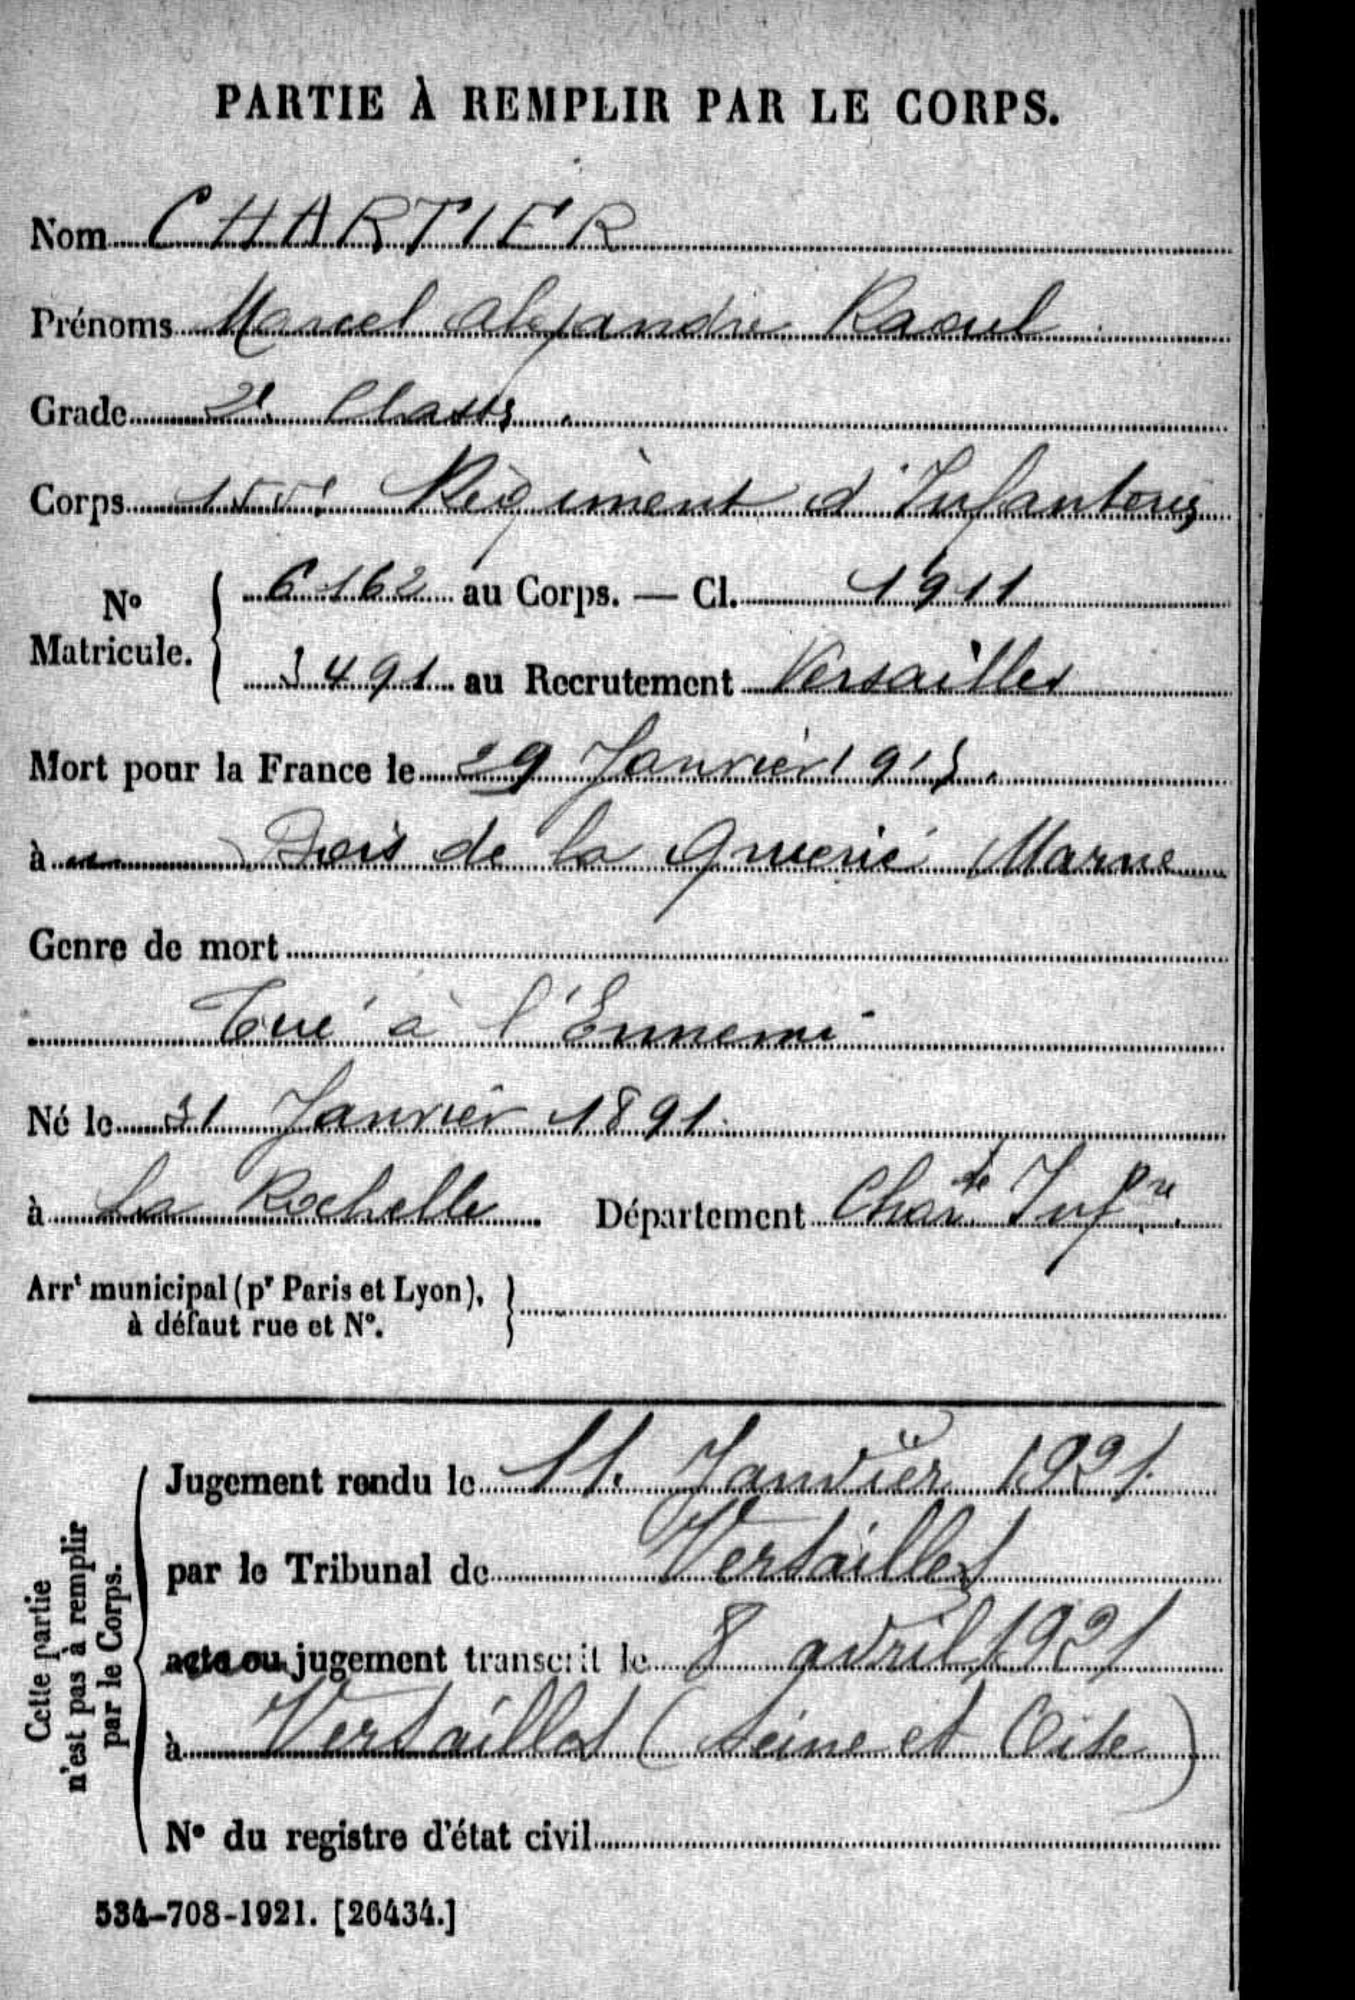 PARTIE À REMPLIR PAR LE CORPS.
Nom CHARTIER
Prénoms Marcel Alexandre Raoul
Grade 2e Classe
Corps 155e Régiment d'Infanterie
No Matricule. 6162 au Corps. — Cl. 1911
3491 au Recrutement Versailles
Mort pour la France le 29 Janvier 1915.
à Bois de la Gruerie Marne
Genre de mort
Tué à l'Ennemi
Né le 31 Janvier 1891.
à La Rochelle Département Charte Infre.
Arrt municipal (pr Paris et Lyon), à défaut rue et No.
Cette partie n'est pas à remplir par le Corps.
Jugement rendu le 11. Janvier 1921.
par le Tribunal de Versailles
acte ou jugement transcrit le 8 avril 1921
à Versailles (Seine et Oise)
No du registre d'état civil
534-708-1921. [26434.]